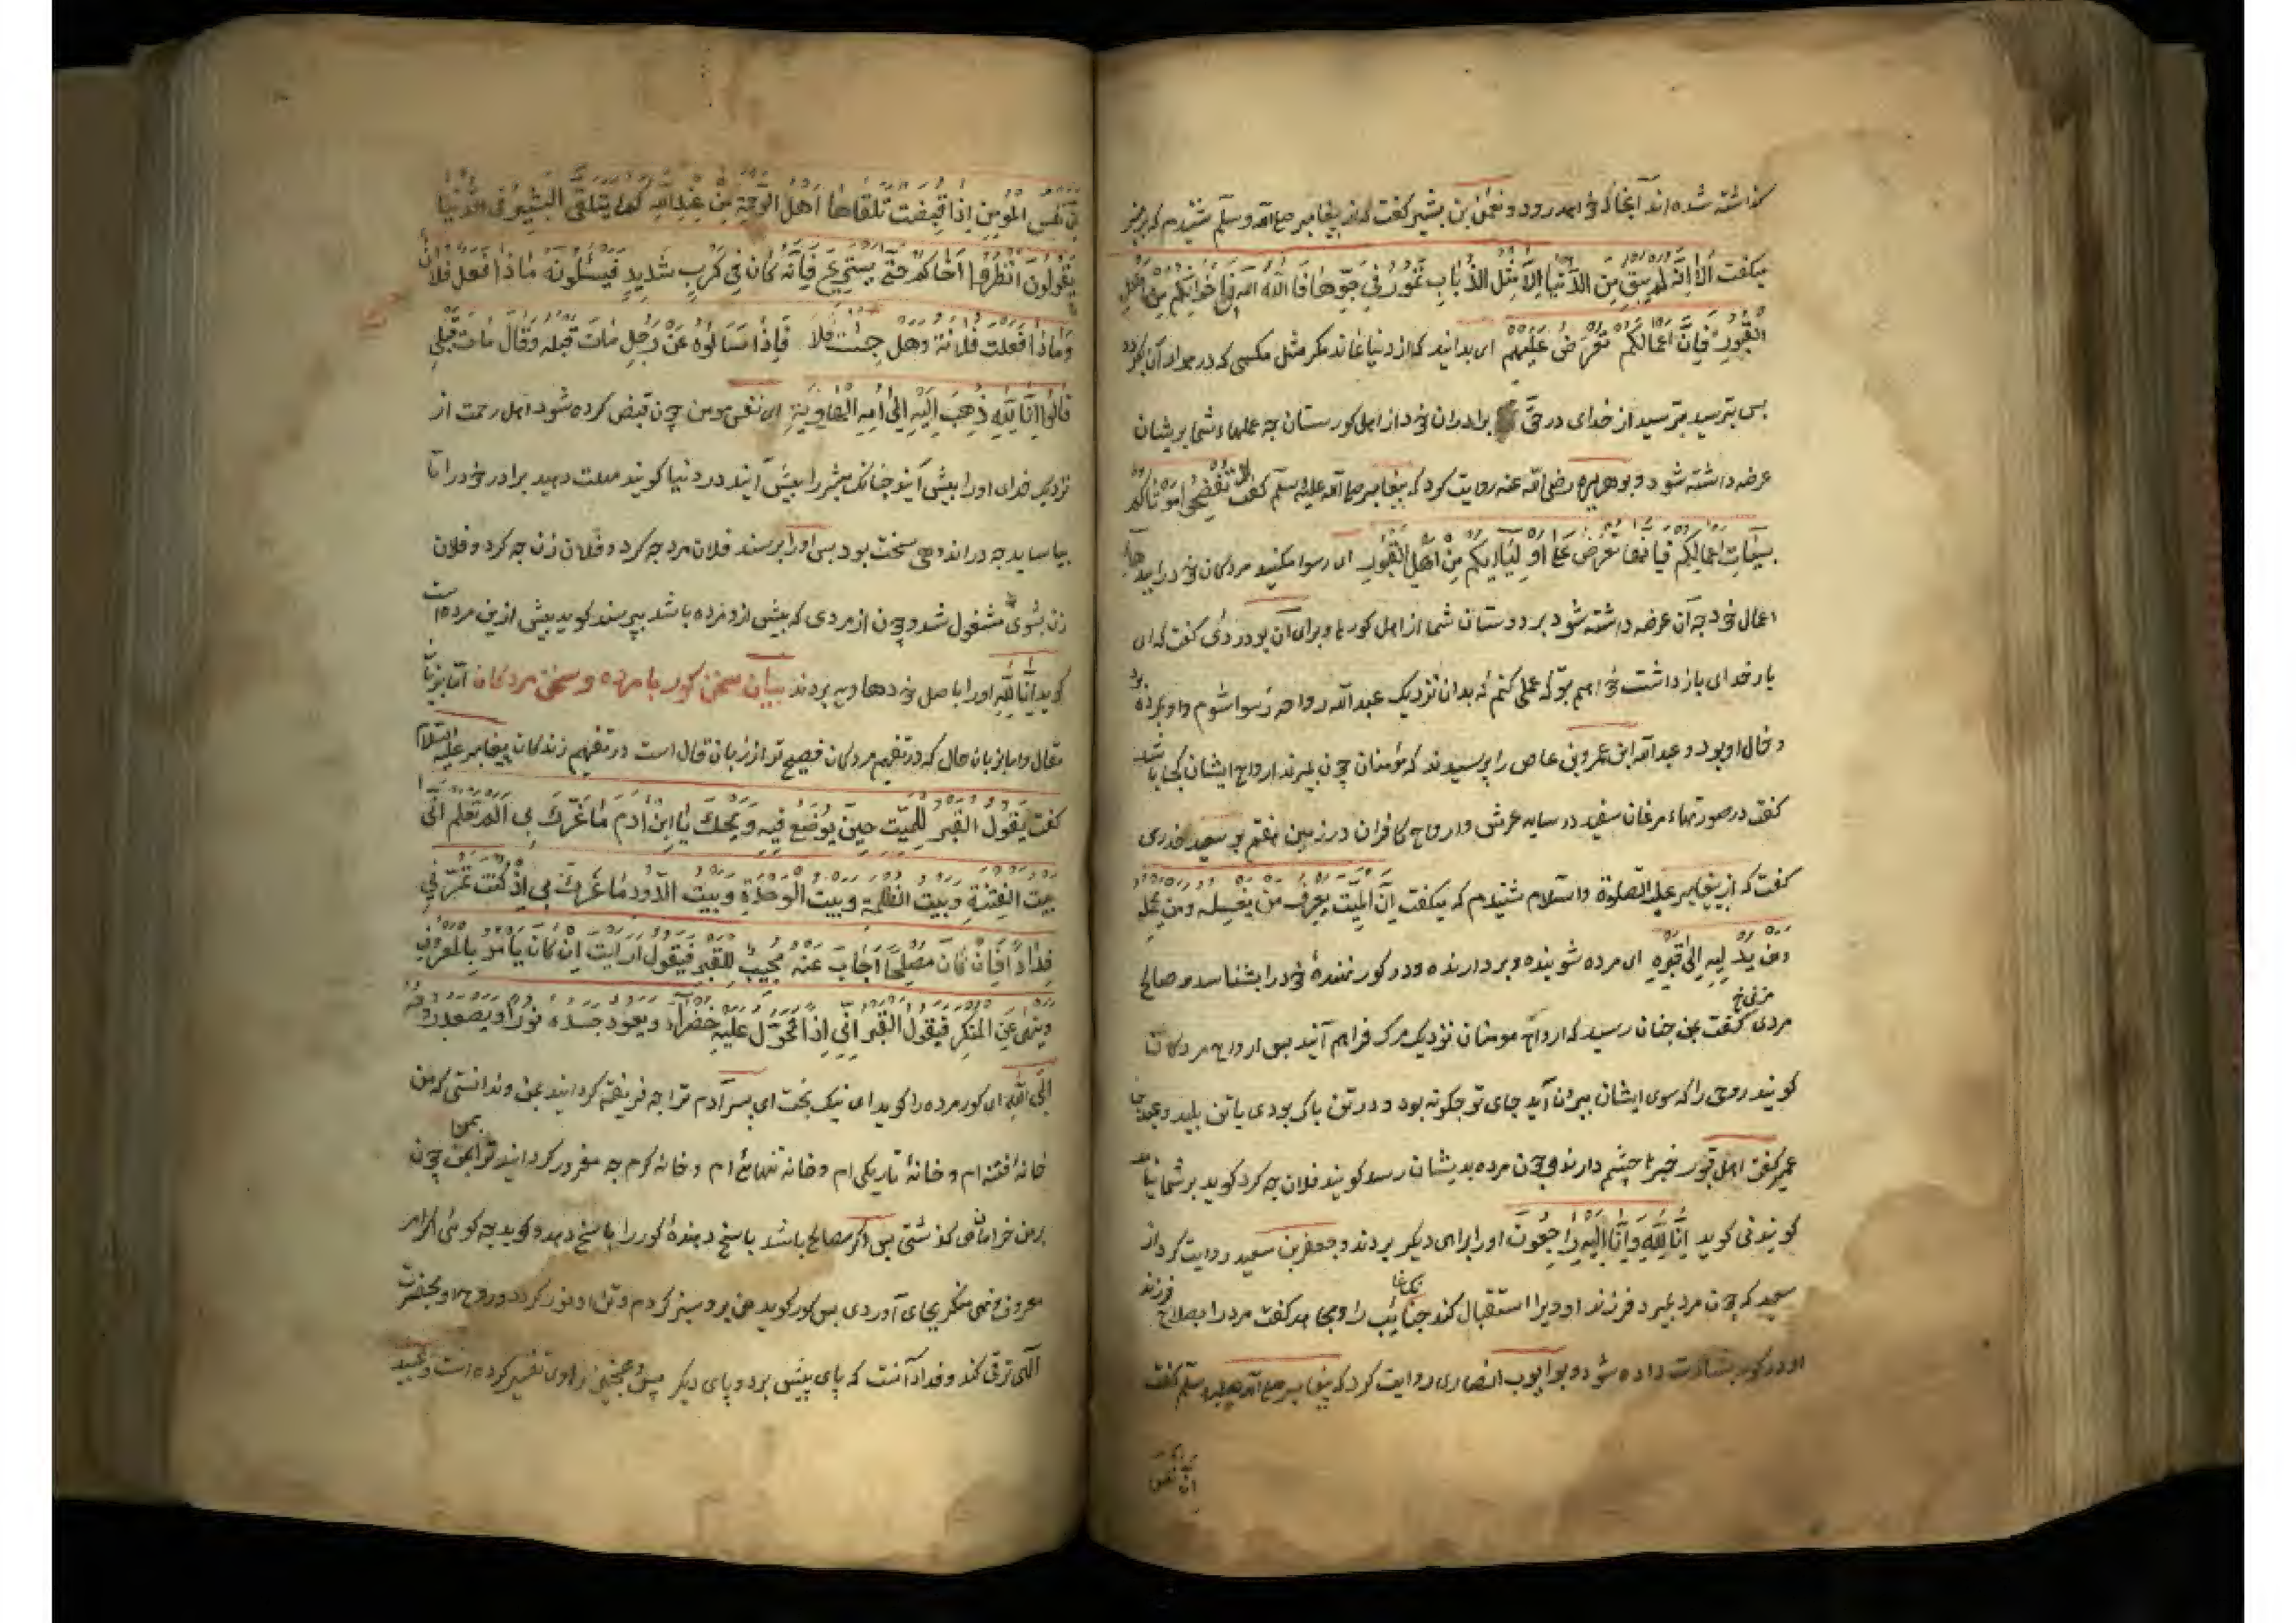 گذاشته شده اند آنجا که خواهند رود و نعمن بن بشیر گفت که از پیغامبر صلی الله وسلم شنیدم که بر منبر
میگفت اَلَا اِنَّهُ لَمْ یَبْقَ مِنَ الدُّنْیَا اِلَّا مِثْلُ الذُّبَابِ تَمُورُ فِی جَوِّهَا فَاللهَ اللهَ فِی اِخْوَانِکُمْ مِنْ اَهْلِ
القُبُورِ فَاِنَّ اَعْمَالَکُمْ تُعْرَضُ عَلَیْهِمْ ای بدانید که از دنیا نماند مکر مثل مکسی که در هواء آن بکردد
بس بترسید بترسید از خدای در حق برادران خود از اهل کورستان چه عملهاء شما بریشان
عرضه داشته شود و بوهریره رضی الله عنه روایت کرد که پیغامبر صلی الله علیه وسلم کفت لا تفضحوا موتاکم
بسیئات اعمالکم فانها تعرض علی اولیایکم من اهل القبور ای رسوا مکنید مردکان خود را ببدیهاء
اعمال خود چه آن عرضه داشته شود بر دوستان شما از اهل کورها و برای آن بودردی کفت که ای
بار خدای باز داشت خواهم بتو که عملی کنم که بدان نزدیک عبد الله رواحه رسوا شوم و او مرده بود
و خال او بود و عبد الله ابن عمرو بن عاص را پرسیدند که مؤمنان چون بمیرند ارواح ایشان کجا باشد
کفت در صورتهاء مرغان سفید در سایه عرش و ارواح کافران در زمین هفتم بو سعید خدری
کفت که از پیغامبر علیه الصلوة والسلام شنیدم که میکفت ان المیت یعرف من یغسله ومن یحمله
ومن یدلیه الی قبره ای مرده شوینده و بردارنده و در کور نهندهٔ خود را بشناسد و صالح
مردی کفت بمن چنان رسید که ارواح مومنان نزدیک مرک فراهم آیند بس ارواح مردکان
کویند روح را که سوی ایشان بیرون آید جای تو چکونه بود و در تن پاک بودی یا تن پلید و عبید
عمیر کفت اهل قبور خبر را چشم دارند و چون مرده بدیشان رسد کویند فلان چه کرد کوید بر شما نیامد
کویند نی کوید انا لله وانا الیه راجعون او را براهی دیکر بردند و جعفر بن سعید روایت کرد از
سعید که چون مرد بمیرد فرزند او ویرا استقبال کند چنانک غایب را و مجاهد کفت مرد را بصلاح فرزند
او در کور بشارت داده شود و بو ایوب انصاری روایت کرد که پیغامبر صلی الله علیه وسلم کفت
ان نفس
ان نفس المؤمن اذا قبضت تلقاها اهل الرحمة من عند الله کما یتلقی البشیر فی الدنیا
یقولون انظروا اخاکم حتی یستریح فانه کان فی کرب شدید فیسئلونه ماذا فعل فلان
وماذا فعلت فلانة وهل فاذا سالوه عن رجل مات قبله وقال مات قبلی
قالوا انا لله ذهب الیه الی امه الهاویة ای نفس مومن چون قبض کرده شود اهل رحمت از
نزدیک خدای او را بیش آیند چنانک مبشر را بیش آیند در دنیا کویند مهلت دهید برادر خود را تا
بیاساید چه در اندوهی سخت بود بس او را برسند فلان مرد چه کرد و فلان زن چه کرد و فلان
زن بشوی مشغول شد و چون از مردی که بیش ازو مرده باشد بپرسند کوید بیش از من مرده است
کوید انا لله او را باصل خود هاویه بردند بیان سخن کور با مرده و سخن مردکان اما بزبان
مقال واما بزبان حال که در تفهیم مردکان فصیح تر از زبان قال است در تفهیم زندکان پیغامبر علیه السلام
کفت یقول القبر للمیت حین یوضع فیه ویحک یا ابن ادم ما غرک بی الم تعلم انی
بیت الفتنة وبیت الظلمة وبیت الوحدة وبیت الدود ما غرک بی اذ کنت تمر بی
فدادا فان کان مصلحا اجاب عنه مجیب للقبر فیقول ارایت ان کان یامر بالمعروف
وینهی عن المنکر فیقول القبر انی اذا اتحول علیه خضراء ویعود جسده نورا ویصعد روحه
الی الله ای کور مرده را کوید ای نیک بخت ای پسر آدم ترا چه فریفته کردانید بمن و ندانستی که من
خانهٔ فتنه ام و خانهٔ تاریکی ام و خانه تنهائی ام و خانه کرم چه مغرور کردانید ترا بمن چون
بر من خرامان می کذشتی بس اکر مصالح باشد پاسخ دهندهٔ کور را پاسخ دهد و کوید چه کوئی اکر امر
معروف و نهی منکر بجای آوردی بس کور کوید من برو سبز کردم و تن او نور کردد و روح او بحضرت
الهی ترقی کند و فداد آنست که پای پیش برد و پای دیکر پس همچنین راوی تفسیر کرده است و عبید